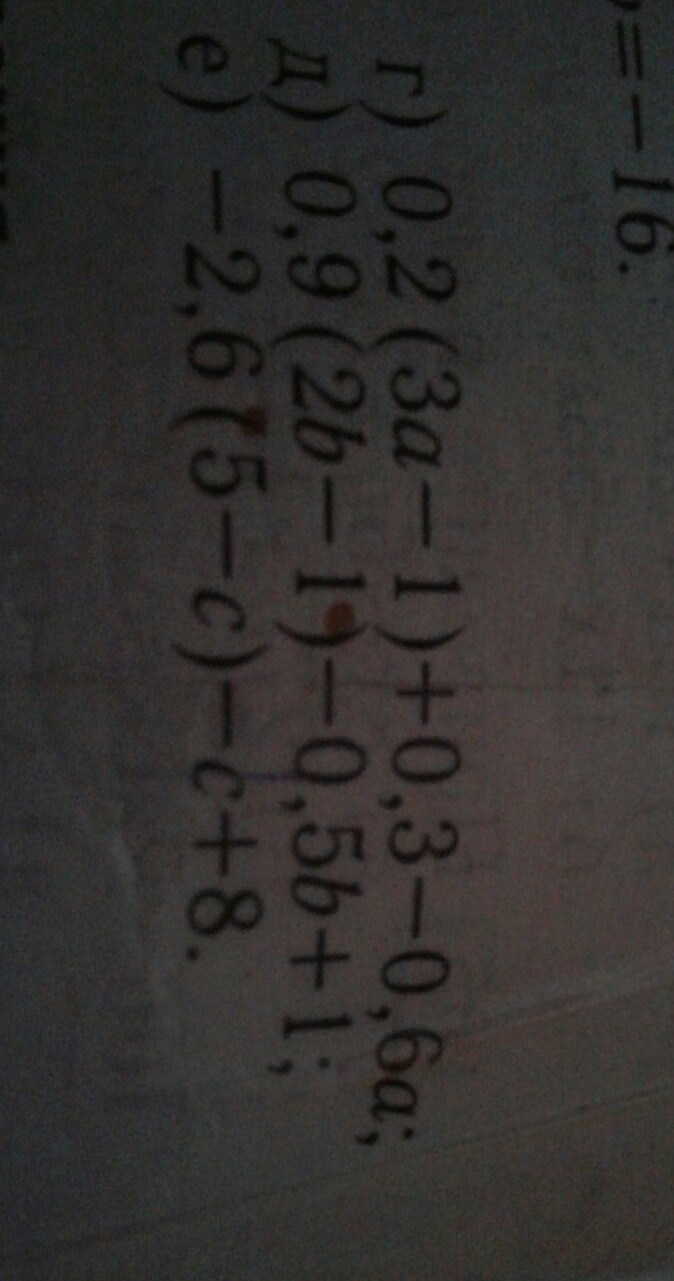 =−16.
г) 0,2(3a−1)+0,3−0,6a;
д) 0,9(2b−1)−0,5b+1;
е) −2,6(5−c)−c+8.